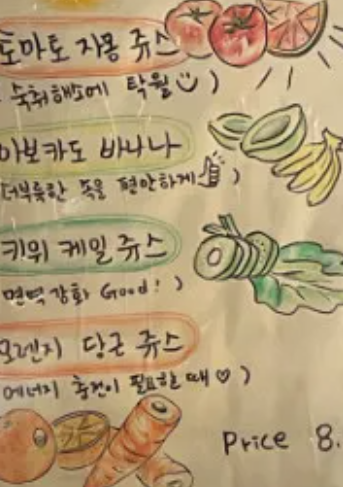 토마토 자몽 쥬스
숙취해소에 탁월 )
아보카도 바나나
더부룩한 속을 편안하게 )
키위 케일 쥬스
면역 강화 Good! )
오렌지 당근 쥬스
에너지 충전이 필요할 때 ♡ )
Price 8.